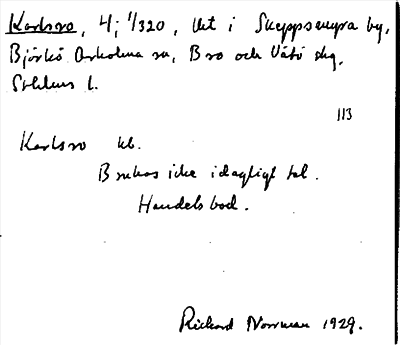 Karlsro, 4; 1/320, Urt i Skeppsmyra by,
Björkö Arholma sn, Bro och Vätö skg,
Sthlms l.
113
Karlsro kl.
Brukas icke i dagligt tal.
Handelsbod.
Richard Norrman 1929.